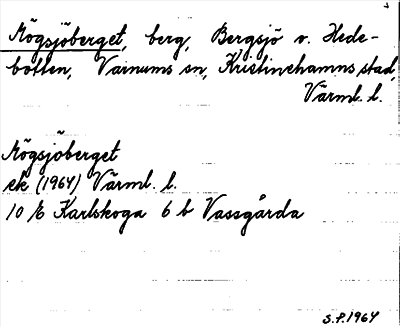 Mögsjöberget, berg, Bergsjö v. Hede-
botten, Varnums sn, Kristinehamns stad,
Värml. l.
Mögsjöberget
ek (1964) Värml. l.
10 E Karlskoga 6 b Vassgårda
S.P. 1964